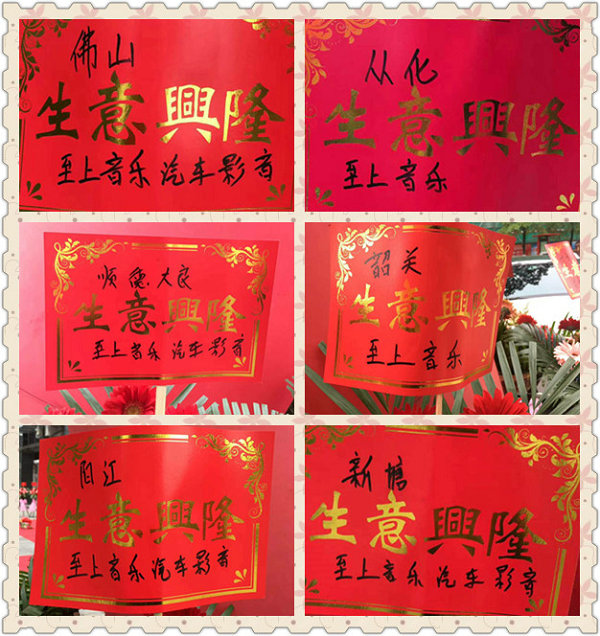 佛山
生意興隆
至上音乐汽车影音
从化
生意興隆
至上音乐
顺德大良
生意興隆
至上音乐 汽车影音
韶关
生意興隆
至上音乐
阳江
生意興隆
至上音乐汽车影音
新塘
生意興隆
至上音乐 汽车影音